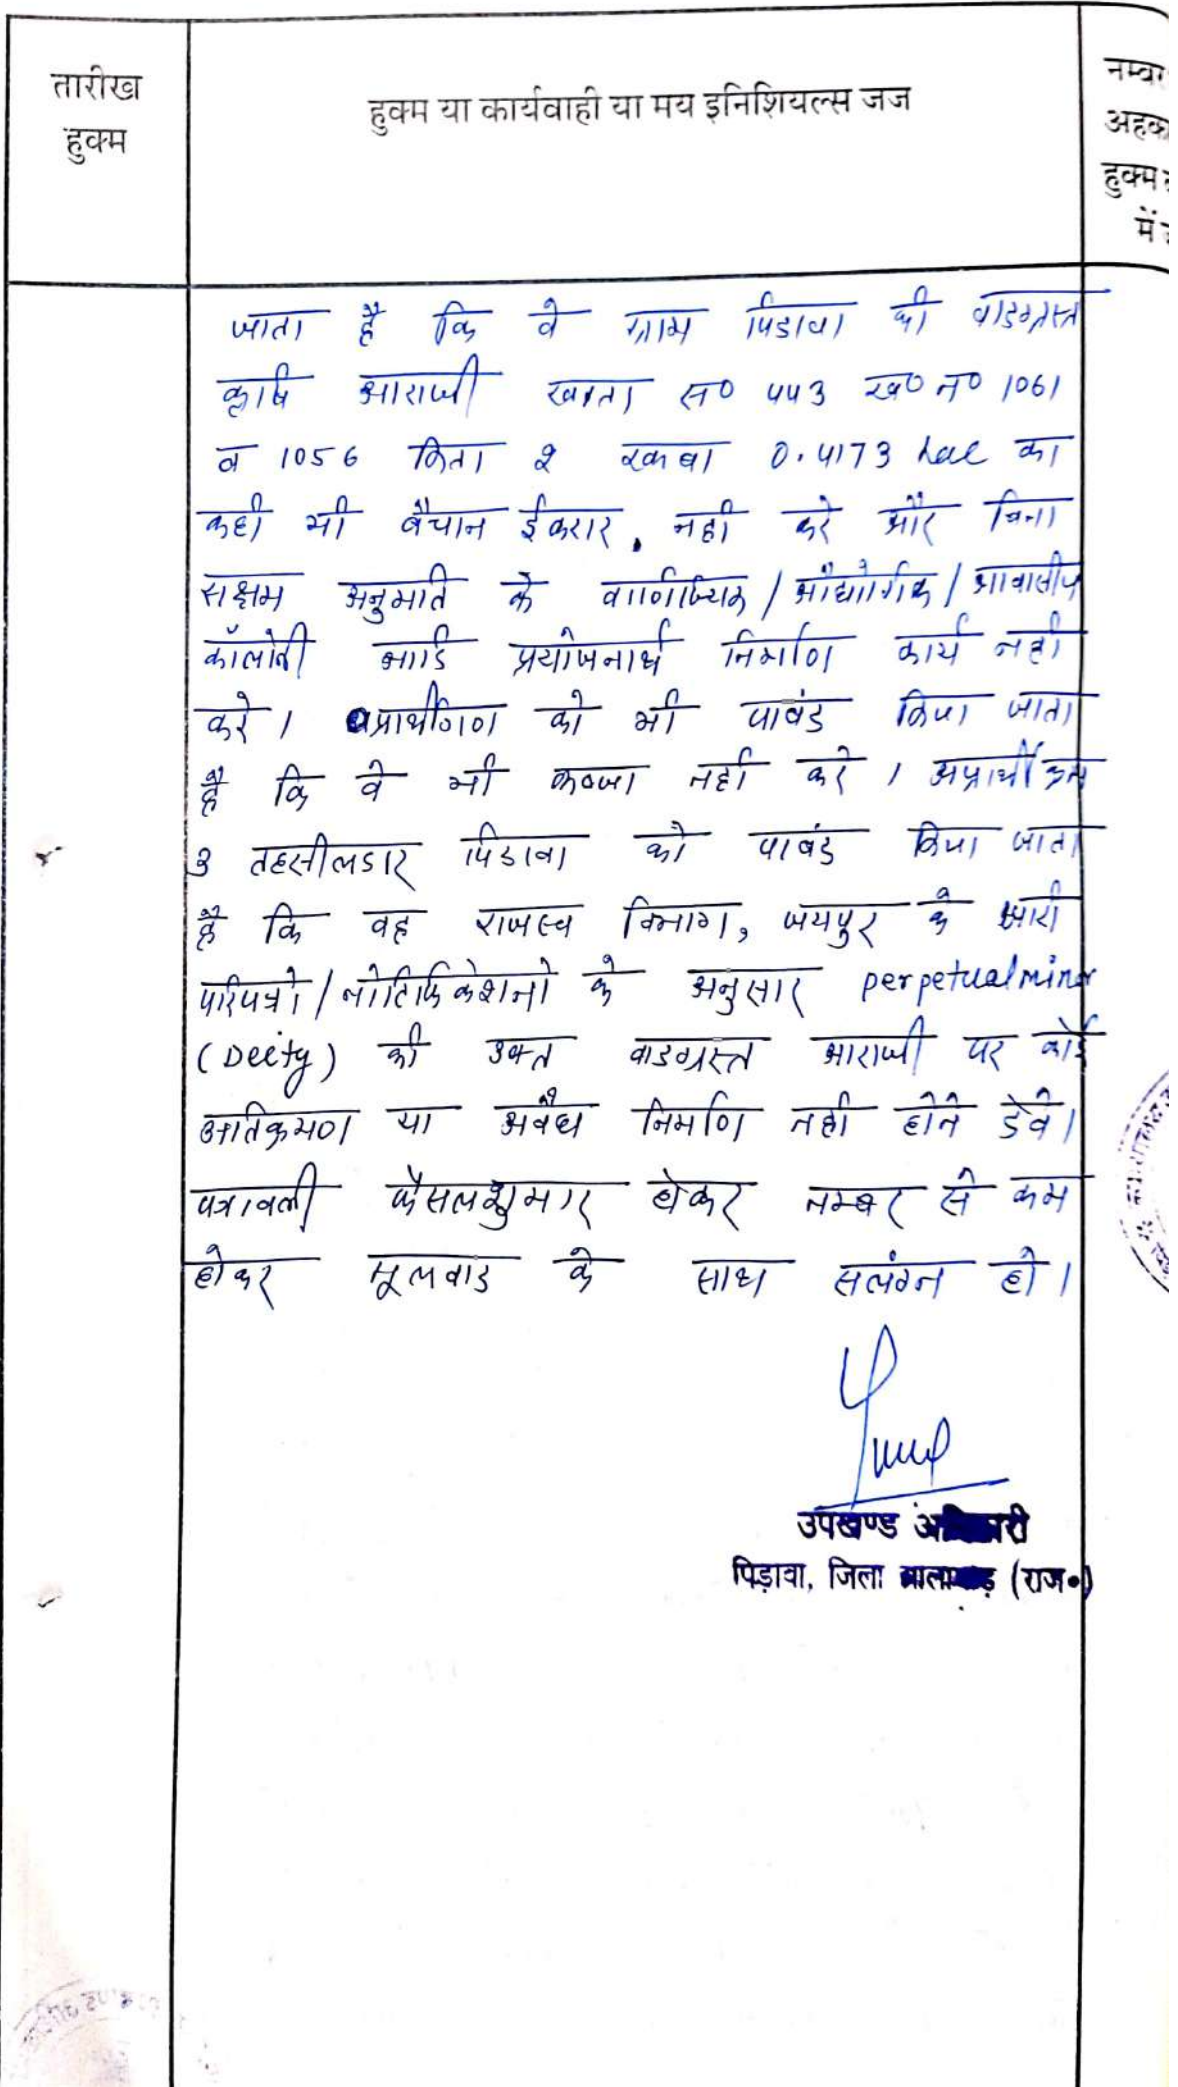 तारीख
हुक्म
हुक्म या कार्यवाही या मय इनिशियल्स जज
नम्बर
अहका
हुक्म
में
जाता है कि वे ग्राम पिडावा की वाडग्रस्त
कृषि आराजी खाता स० 443 ख० न० 1061
व 1056 किता 2 रकबा 0.4173 hec का
कही भी बैचान ईकरार, नही करे और बिना
सक्षम अनुमति के वाणिज्यिक / औद्योगिक / आवासीय
कॉलोनी आदि प्रयोजनार्थ निर्माण कार्य नही
करे । प्रार्थीगण को भी पाबंड किया जाता
है कि वे भी कब्जा नही करे । अप्रार्थी क्रम
3 तहसीलडार पिडावा को पाबंड किया जाता
है कि वह राजस्व विभाग, जयपुर के जारी
परिपत्रो / नोटिफिकेशनो के अनुसार perpetual minor
(Deity) की उक्त वाडग्रस्त आराजी पर कोई
अतिक्रमण या अवैध निर्माण नही होने डेवे।
पत्रावली फैसलशुमार होकर नम्बर से कम
होकर मूलवाड के साथ सलंग्न हो ।
उपखण्ड अधिकारी
पिड़ावा, जिला झालावाड़ (राज०)